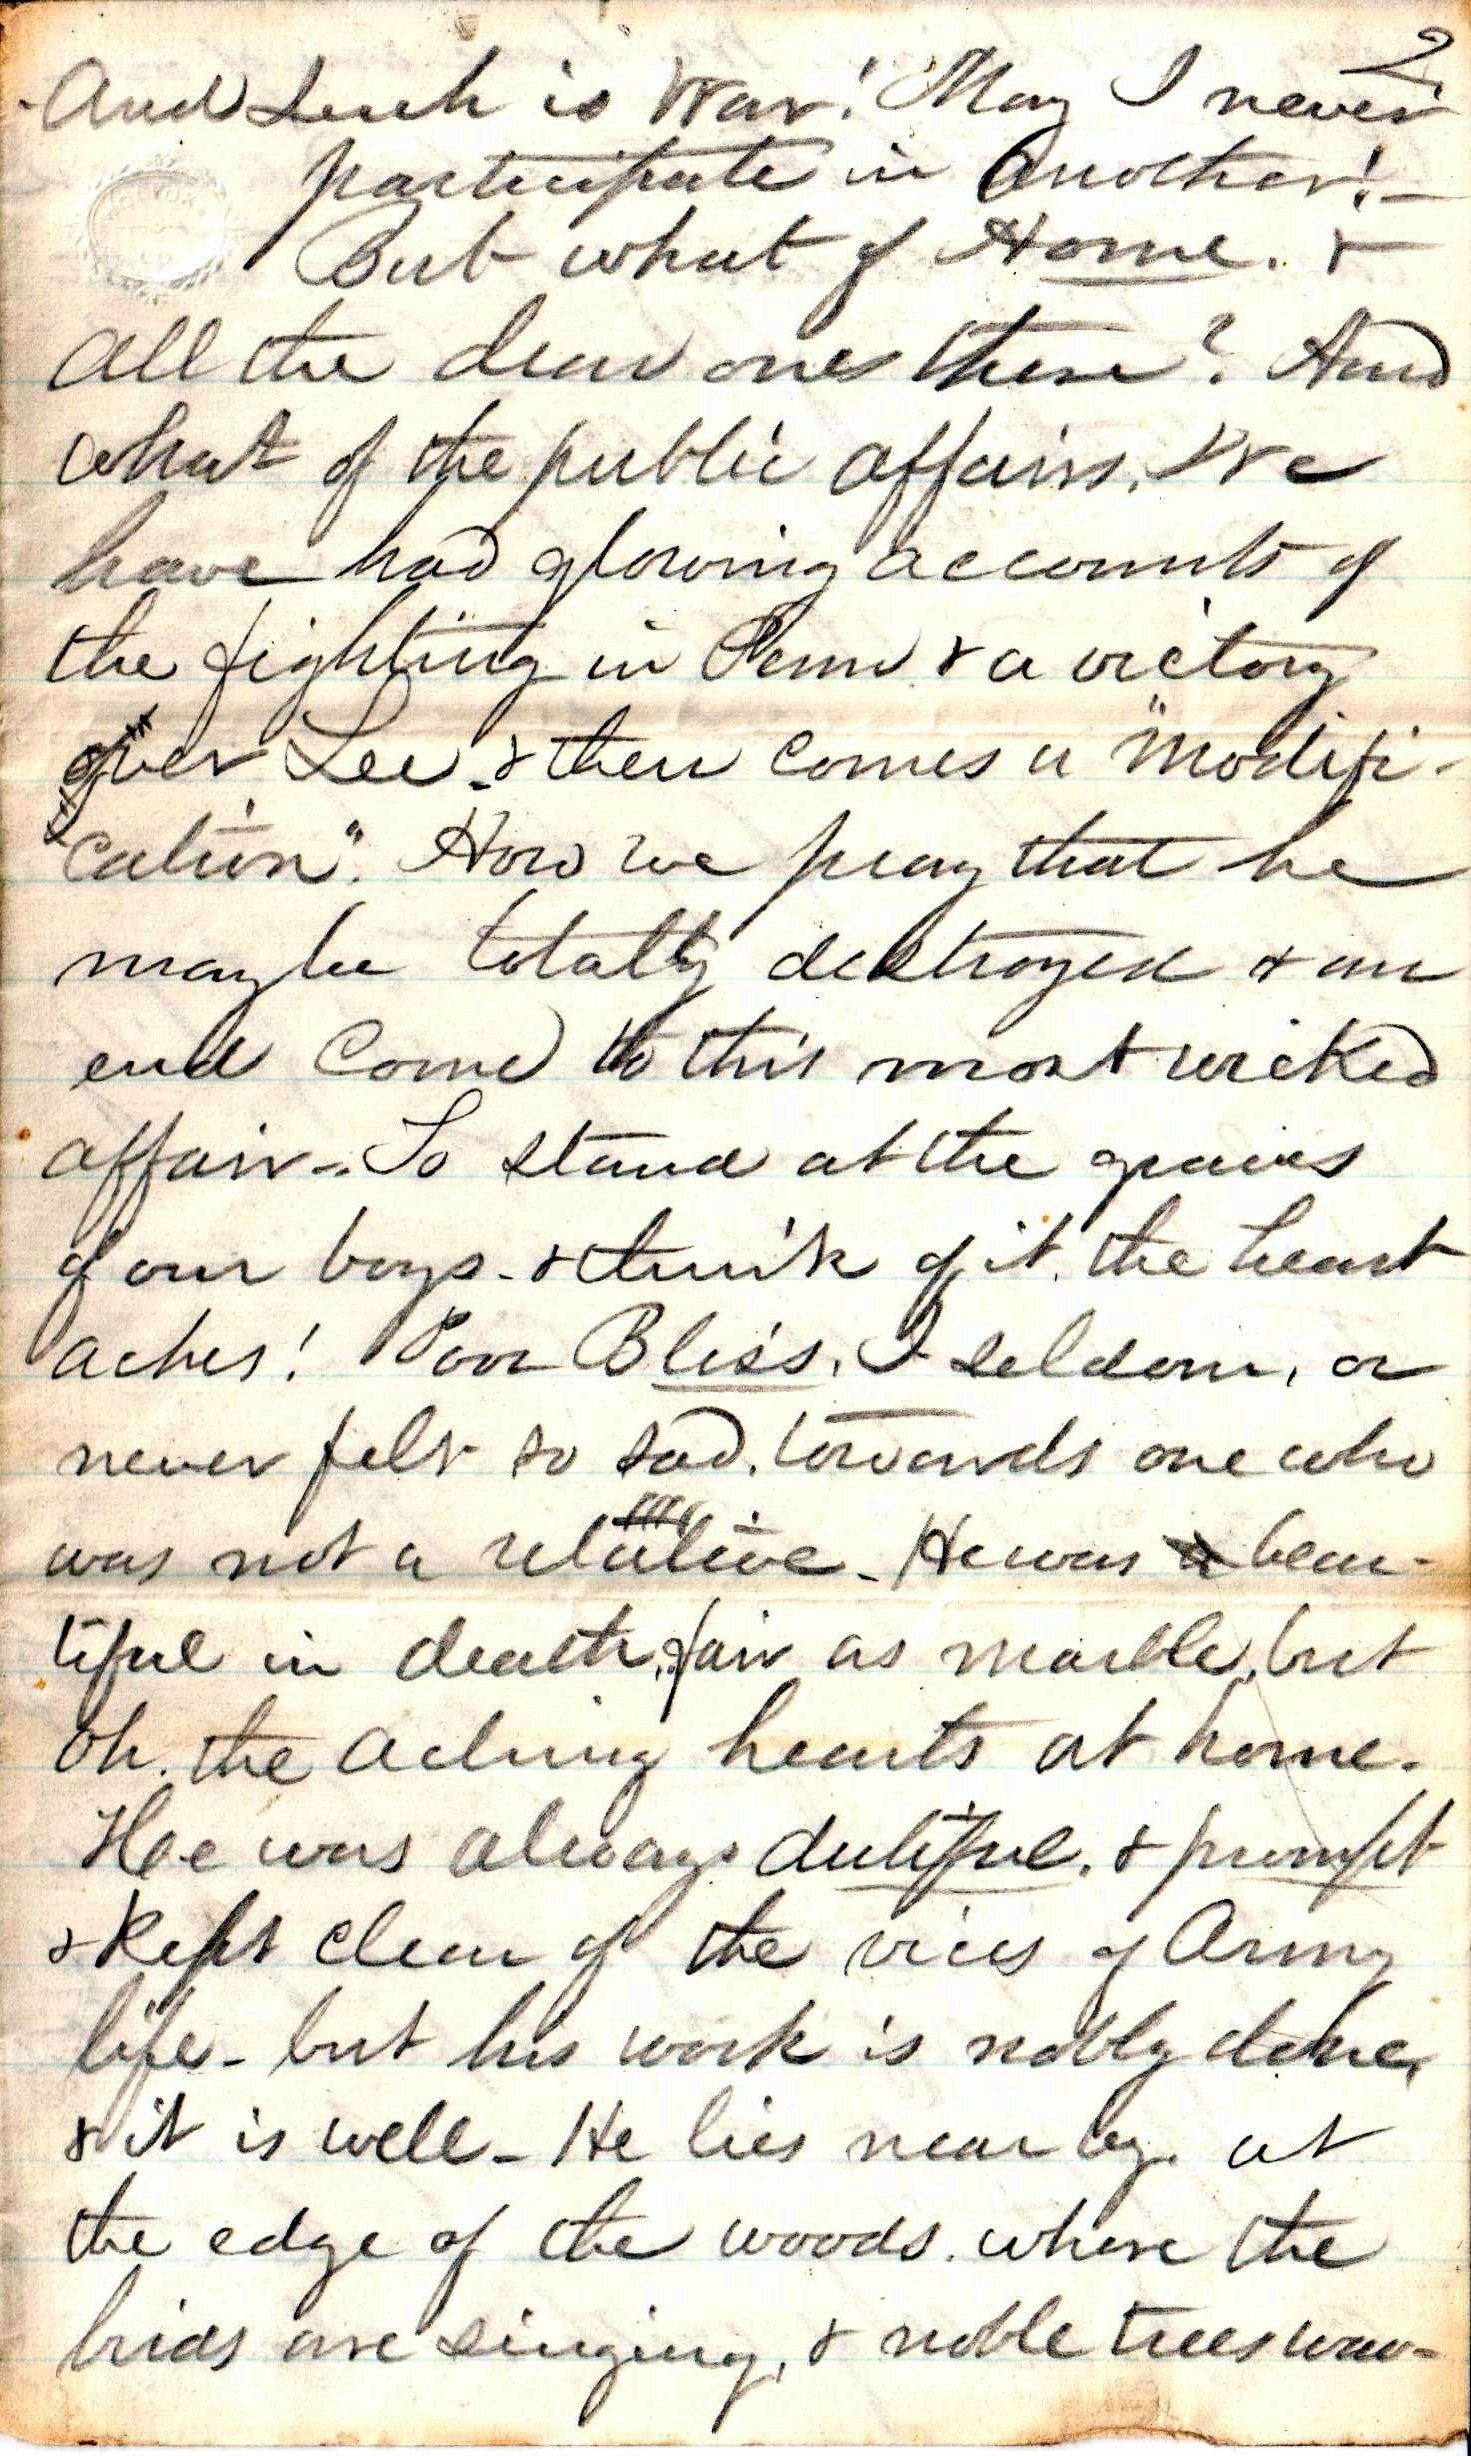 2
And such is War! May I never
participate in Another! -
But what of Home. &
all the dear ones there? And
what of the public affairs. We
have had glowing accounts of
the fighting in Penn & a victory
over Lee - & then comes a "modifi-
cation". How we pray that he
maybe totally destroyed & an
end come to this most wicked
affair -. To stand at the graves
of our boys - & think of it. the heart
aches! Poor Bliss. I seldom, or
never felt so sad. towards one who
was not a relative - He was beau-
tiful in death, fair as marble, but
oh. the aching hearts at home.
He was always dutiful, & prompt
& kept clear of the vices of Army
life - but his work is nobly done,
& it is well - He lies near by. at
the edge of the woods. where the
birds are singing, & noble trees wav-